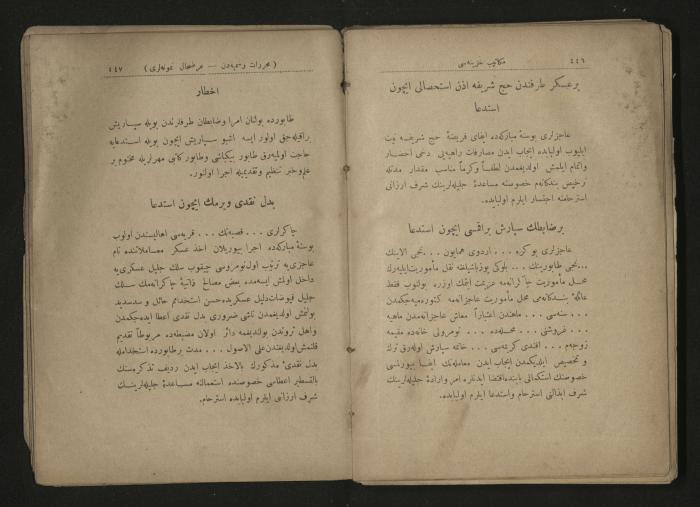 ٤٤٦
مكاتيب خزينه‌سى
بر عسكر طرفندن حج شريفه اذن استحصالى ايچون
استدعا
عاجزلرى بو سنهٔ مباركه‌ده ايفاى فريضهٔ حج شريفه نيت
ايليوب اولبابده ايجاب ايدن مصارفات راهيه‌يى دخى احضار
واتمام ايلمش اولديغمدن لطفاً وكرماً مناسب مقدار مدتله
ترخيص بندكانه‌م خصوصنه مساعدهٔ جليله‌لرينك شرف ارزانى
استرحامنه اجتسار ايلرم اولبابده.
بر ضابطك سپارش براقمسى ايچون استدعا
عاجزلرى بو كره . . . اردوى همايون . . . نجى الاينك
. . . نجى طابورينك . . . بلوكى يوزباشيلغنه نقل مأموريت ايله‌رك
محل مأموريت چاكرانه‌مه عزيمت ايتمك اوزره بولنوب فقط
عائلهٔ بندكانه‌مى محل مأموريت عاجزانه‌مه كتوره‌ميه‌جكمدن
. . . سنه‌سى . . . ماهندن اعتباراً معاش عاجزانه‌مدن ماهيه
. . . غروشنى . . . محله‌ده . . . نومرولى خانه‌ده مقيمه
زوجه‌م . . . افندى كريمه‌سى . . . خانمه سپارش اوله‌رق ترك
و تخصيص ايلديكمدن ايجاب ايدن معامله‌نك ايفا بيورلمسى
خصوصنك استكمالى بابنده اقتضا ايدنلره امر وارادهٔ جليله‌لرينك
شرف ابذالنى استرحام واستدعا ايلرم اولبابده.
(محررات رسميه‌دن — عرضحال نمونه‌لرى) ٤٤٧
اخطار
طابورده بولنان امرا وضابطان طرفلرندن بويله سپارش
براقيله‌جق اولور ايسه اشبو سپارش ايچون بويله استدعايه
حاجت اوليه‌رق طابور بيكباشى وطابور كاتبى مهرلريله مختوم بر
علم وخبر تنظيم وتقديميله اجرا اولنور.
بدل نقدى ويرمك ايچون استدعا
چاكرلرى . . . قصبه‌نك . . . قريه‌سى اهاليسندن اولوب
بو سنهٔ مباركه‌ده اجرا بيوريلان اخذ عسكر معاملاتنده نام
عاجزى‌يه ترتيب اول نومروسى چيقوب سلك جليل عسكرى‌يه
داخل اولمش ايسه‌مده بعض مصالح ذاتيهٔ چاكرانه‌مك سلك
جليل فيوضات دليل عسكريده‌حسن استخدامم حائل و سد سديد
بولنمش اولديغمدن ناشى ضرورى بدل نقدى اعطا ايده‌جكمدن
واهل ثروتدن بولنديغمه دائر اولان مضبطه‌ده مربوطاً تقديم
قلنمش اولديغندن على الاصول . . . مدت بر طابورده استخدامله
بدل نقدىٔ مذكورك بالاخذ ايجاب ايدن رديف تذكره‌سنك
بالتسطير اعطاسى خصوصنده استعمالنه مساعدهٔ جليله‌لرينك
شرف ارزانى ايلرم اولبابده استرحام.